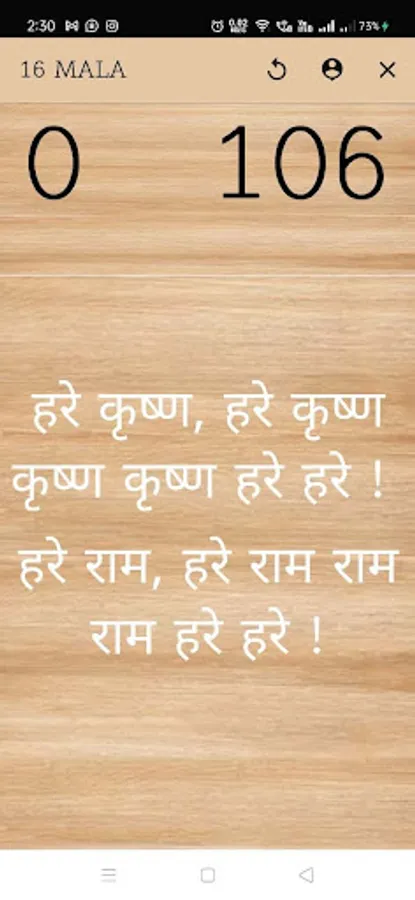 2:30
73%
16 MALA
0 106
हरे कृष्ण, हरे कृष्ण
कृष्ण कृष्ण हरे हरे !
हरे राम, हरे राम राम
राम हरे हरे !